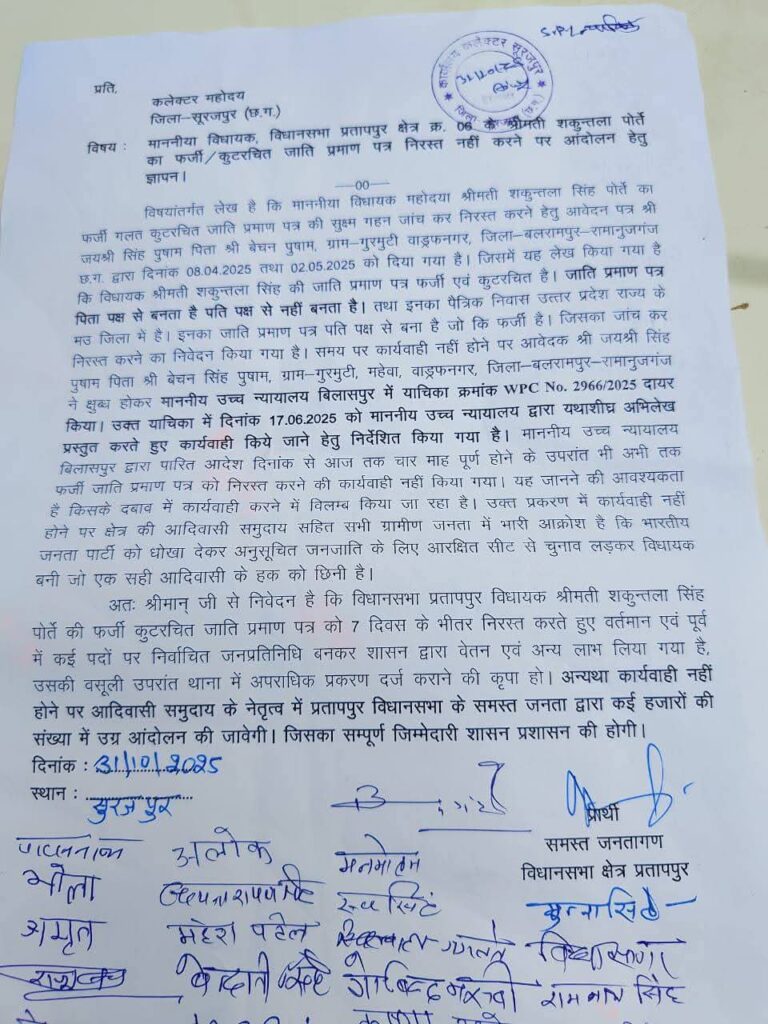 प्रति,
कलेक्टर महोदय
जिला–सूरजपुर (छ.ग.)
कार्यालय कलेक्टर सूरजपुर
विषय : माननीया विधायक, विधानसभा प्रतापपुर क्षेत्र क्र. 06 के श्रीमती शकुन्तला पोर्ते
का फर्जी/कुटरचित जाति प्रमाण पत्र निरस्त नहीं करने पर आंदोलन हेतु
ज्ञापन।
—00—
विषयांतर्गत लेख है कि माननीया विधायक महोदया श्रीमती शकुन्तला सिंह पोर्ते का
फर्जी गलत कुटरचित जाति प्रमाण पत्र की सुक्ष्म गहन जांच कर निरस्त करने हेतु आवेदन पत्र श्री
जयश्री सिंह पुषाम पिता श्री बेचन पुषाम, ग्राम–गुरमुटी वाड्रफनगर, जिला–बलरामपुर–रामानुजगंज
छ.ग. द्वारा दिनांक 08.04.2025 तथा 02.05.2025 को दिया गया है। जिसमें यह लेख किया गया है
कि विधायक श्रीमती शकुन्तला सिंह की जाति प्रमाण पत्र फर्जी एवं कुटरचित है। जाति प्रमाण पत्र
पिता पक्ष से बनता है पति पक्ष से नहीं बनता है। तथा इनका पैत्रिक निवास उत्तर प्रदेश राज्य के
मउ जिला में है। इनका जाति प्रमाण पत्र पति पक्ष से बना है जो कि फर्जी है। जिसका जांच कर
निरस्त करने का निवेदन किया गया है। समय पर कार्यवाही नहीं होने पर आवेदक श्री जयश्री सिंह
पुषाम पिता श्री बेचन सिंह पुषाम, ग्राम–गुरमुटी, महेवा, वाड्रफनगर, जिला–बलरामपुर–रामानुजगंज
ने क्षुब्ध होकर माननीय उच्च न्यायालय बिलासपुर में याचिका क्रमांक WPC No. 2966/2025 दायर
किया। उक्त याचिका में दिनांक 17.06.2025 को माननीय उच्च न्यायालय द्वारा यथाशीघ्र अभिलेख
प्रस्तुत करते हुए कार्यवाही किये जाने हेतु निर्देशित किया गया है। माननीय उच्च न्यायालय
बिलासपुर द्वारा पारित आदेश दिनांक से आज तक चार माह पूर्ण होने के उपरांत भी अभी तक
फर्जी जाति प्रमाण पत्र को निरस्त करने की कार्यवाही नहीं किया गया। यह जानने की आवश्यकता
है किसके दबाव में कार्यवाही करने में विलम्ब किया जा रहा है। उक्त प्रकरण में कार्यवाही नहीं
होने पर क्षेत्र की आदिवासी समुदाय सहित सभी ग्रामीण जनता में भारी आक्रोश है कि भारतीय
जनता पार्टी को धोखा देकर अनुसूचित जनजाति के लिए आरक्षित सीट से चुनाव लड़कर विधायक
बनी जो एक सही आदिवासी के हक को छिनी है।
अतः श्रीमान् जी से निवेदन है कि विधानसभा प्रतापपुर विधायक श्रीमती शकुन्तला सिंह
पोर्ते की फर्जी कुटरचित जाति प्रमाण पत्र को 7 दिवस के भीतर निरस्त करते हुए वर्तमान एवं पूर्व
में कई पदों पर निर्वाचित जनप्रतिनिधि बनकर शासन द्वारा वेतन एवं अन्य लाभ लिया गया है,
उसकी वसूली उपरांत थाना में अपराधिक प्रकरण दर्ज कराने की कृपा हो। अन्यथा कार्यवाही नहीं
होने पर आदिवासी समुदाय के नेतृत्व में प्रतापपुर विधानसभा के समस्त जनता द्वारा कई हजारों की
संख्या में उग्र आंदोलन की जावेगी। जिसका सम्पूर्ण जिम्मेदारी शासन प्रशासन की होगी।
दिनांक : 31/10/2025
स्थान : सुरजपुर
प्रार्थी
समस्त जनतागण
विधानसभा क्षेत्र प्रतापपुर
अलोक मनमोहन
भोला
अमृत महेश पटेल
रामनाथ सिंह